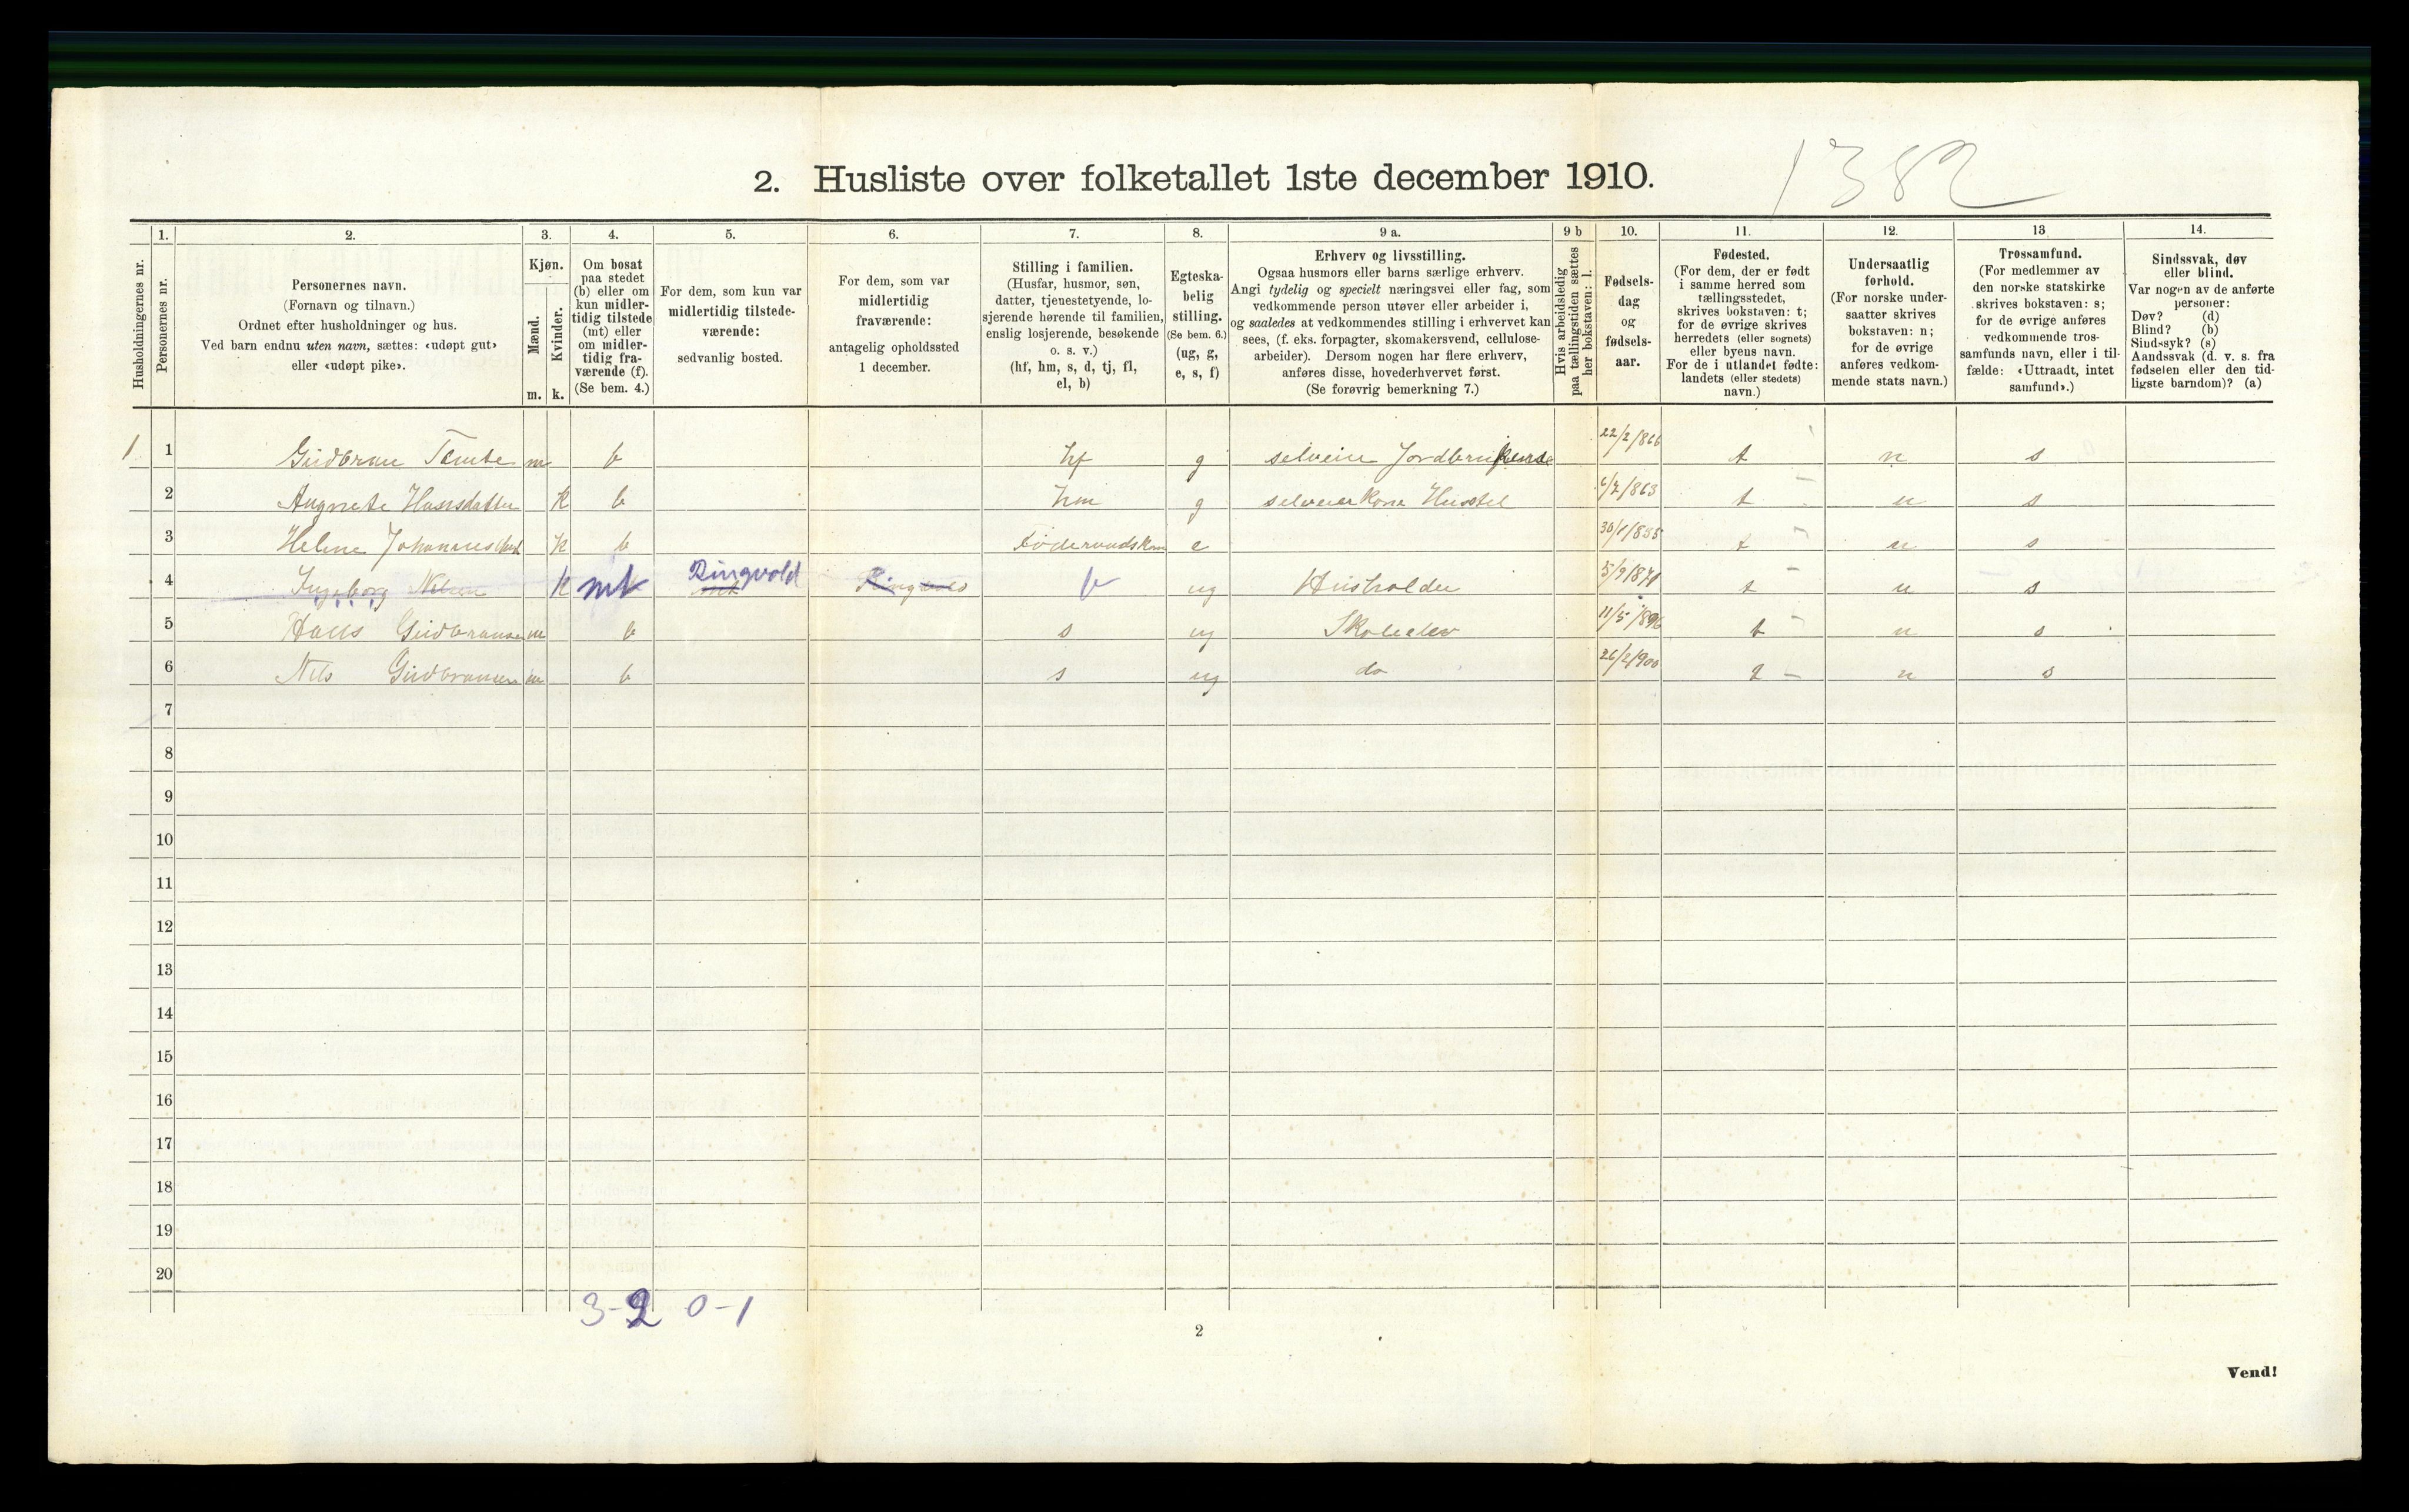 1382
2. Husliste over folketallet 1ste december 1910.
Husholdningernes nr.
1.
Personernes nr.
2.
Personernes navn.
(Fornavn og tilnavn.)
Ordnet efter husholdninger og hus.
Ved barn endnu uten navn, sættes: «udøpt gut»
eller «udøpt pike».
3.
Kjøn.
Mænd.
Kvinder.
m. k.
4.
Om bosat
paa stedet
(b) eller om
kun midler-
tidig tilstede
(mt) eller
om midler-
tidig fra-
værende (f).
(Se bem. 4.)
5.
For dem, som kun var
midlertidig tilstede-
værende:
sedvanlig bosted.
6.
For dem, som var
midlertidig
fraværende:
antagelig opholdssted
1 december.
7.
Stilling i familien.
(Husfar, husmor, søn,
datter, tjenestetyende, lo-
sjerende hørende til familien,
enslig losjerende, besøkende
o. s. v.)
(hf, hm, s, d, tj, fl,
el, b)
8.
Egteska-
belig
stilling.
(Se bem. 6.)
(ug, g,
e, s, f)
9 a.
Erhverv og livsstilling.
Ogsaa husmors eller barns særlige erhverv.
Angi tydelig og specielt næringsvei eller fag, som
vedkommende person utøver eller arbeider i,
og saaledes at vedkommendes stilling i erhvervet kan
sees, (f. eks. forpagter, skomakersvend, cellulose-
arbeider). Dersom nogen har flere erhverv,
anføres disse, hovederhvervet først.
(Se forøvrig bemerkning 7.)
9 b
Hvis arbeidsledig
paa tællingstiden sættes
her bokstaven: l.
10.
Fødsels-
dag
og
fødsels-
aar.
11.
Fødested.
(For dem, der er født
i samme herred som
tællingsstedet,
skrives bokstaven: t;
for de øvrige skrives
herredets (eller sognets)
eller byens navn.
For de i utlandet fødte:
landets (eller stedets)
navn.)
12.
Undersaatlig
forhold.
(For norske under-
saatter skrives
bokstaven: n;
for de øvrige
anføres vedkom-
mende stats navn.)
13
Trossamfund.
(For medlemmer av
den norske statskirke
skrives bokstaven: s;
for de øvrige anføres
vedkommende tros-
samfunds navn, eller i til-
fælde: «Uttraadt, intet
samfund».)
14.
Sindssvak, døv
eller blind.
Var nogen av de anførte
personer:
Døv? (d)
Blind? (b)
Sindssyk? (s)
Aandssvak (d. v. s. fra
fødselen eller den tid-
ligste barndom)? (a)
1 1 Gudbran Tømte m b hf g selveier Jordbruk 22/2/866 t n s
2 Augnete Hansdatter k b hm g selveierkone Husstel 6/7/863 t n s
3 Helene k b e 30/1/835 t n s
4 Ingeborg Nilsen k mt Ringvold mt b ug Husholder 5/9/870 t n s
5 Hans Gudbransen m b s ug Skoleelev 11/5/896 t n s
6 Nils Gudbransen m b s ug do 26/2/900 t n s
7
8
9
10
11
12
13
14
15
16
17
18
19
20
3-2 0-1
2
Vend!